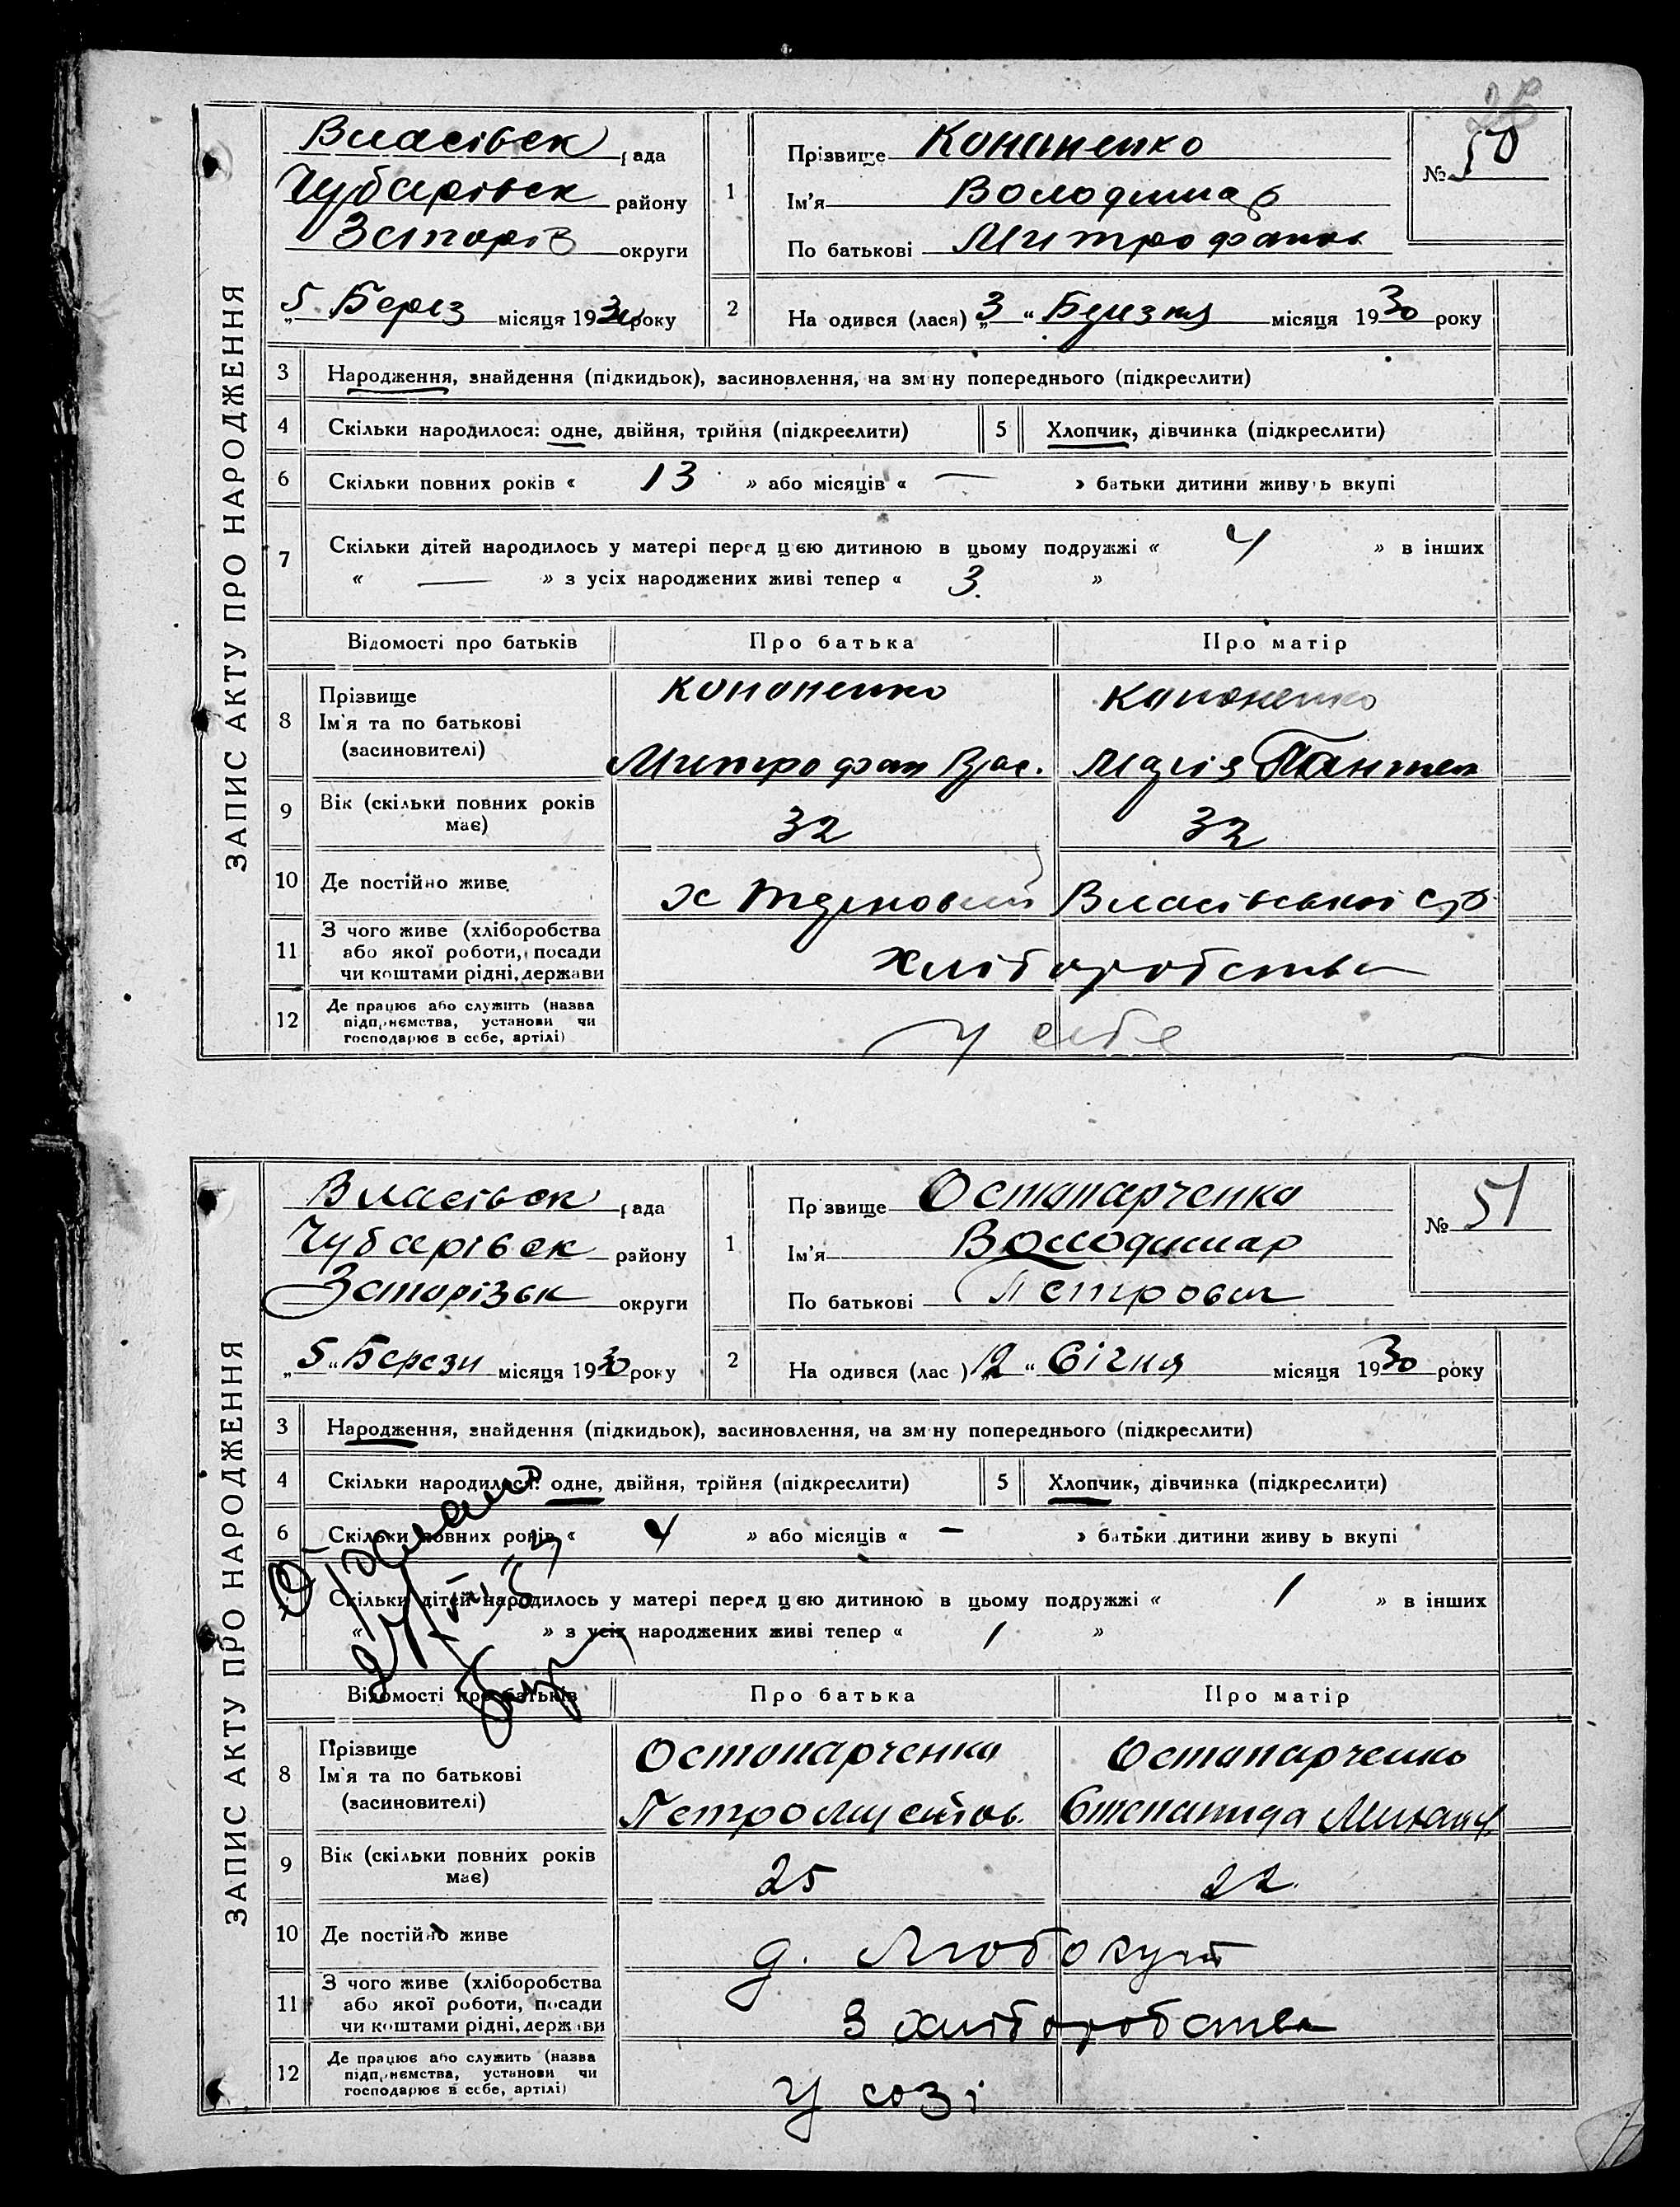 ЗАПИС АКТУ ПРО НАРОДЖЕННЯ
Власівськ рада
Чубарівськ району
Запоріз округи
„5 Берез місяця 1930 року
1 Прізвище Кононенко
Ім'я Володимир
По батькові Митрофанов
№ 50
2 На одився (лася) „3 “ Березня місяця 1930 року
3 Народження, знайдення (підкидьок), засиновлення, на зм ну попереднього (підкреслити)
4 Скільки народилося: одне, двійня, трійня (підкреслити) 5 Хлопчик, дівчинка (підкреслити)
6 Скільки повних років « 13 » або місяців « — » батьки дитини живу ь вкупі
7 Скільки дітей народилось у матері перед цією дитиною в цьому подружжі « 4 » в інших
« — » з усіх народжених живі тепер « 3 »
Відомості про батьків Про батька Про матір
8 Прізвище
Ім'я та по батькові
(засиновителі)
Кононенко Кононенко
Митрофан Марія Пантел
9 Вік (скільки повних років
має)
32 32
10 Де постійно живе
х Власівської с/р
11 З чого живе (хліборобства
або якої роботи, посади
чи коштами рідні, держави
хліборобства
12 Де працює або служить (назва
підпр нємства, установи чи
господарює в себе, артілі)
у себе
ЗАПИС АКТУ ПРО НАРОДЖЕННЯ
Власівськ рада
Чубарівськ району
Запорізьк округи
„5“ Берези місяця 1930 року
1 Пр звище Остопарченко
Ім'я Володимир
По батькові Петрович
№ 51
2 На одився (лас ) „12 “ Січня місяця 1930 року
3 Народження, знайдення (підкидьок), засиновлення, на зм ну попереднього (підкреслити)
4 Скільки народилося: одне, двійня, трійня (підкреслити) 5 Хлопчик, дівчинка (підкреслити)
6 Скільки повних років « 4 » або місяців « – » батьки дитини живу ь вкупі
Скільки дітей народилось у матері перед цією дитиною в цьому подружжі « 1 » в інших
« » з усіх народжених живі тепер « 1 »
Відомості про батьків Про батька Про матір
8 Прізвище
Ім'я та по батькові
(засиновителі)
Остопарченко Остопарченко
Петро Степанида Михайл
9 Вік (скільки повних років
має)
25 22
10 Де постійно живе
д. Любокут
11 З чого живе (хліборобства
або якої роботи, посади
чи коштами рідні, держави
З хліборобства
12 Де працює або служить (назва
підпр нємства, установи чи
господарює в себе, артілі)
у созі